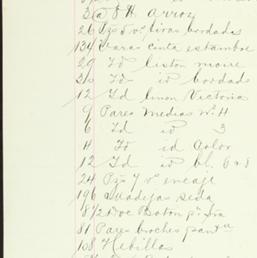 3 @ J H Arroz
26 Pzs 5 vs tiras bordadas
134 Varas cinta estambre
29 Id liston moire
210 Id id bordado
12 Id linon Victoria
9 Pares Medias Nº 4
6 Id id 3
4 Id id color
12 Id id bl. 6 x 8
24 Pzs 7 vs encaje
196 Madejas seda
8 1/2 Doc Boton pª
81 Pares broches pantn
108 Hebillas